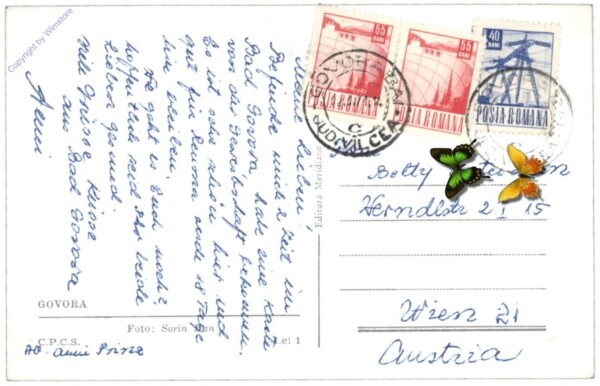 Copyright by Wimstore
Meine Lieben!
Befinde mich z. Zeit in
Bad Govora, habe eine Karte
von der Gewerkschaft bekommen.
Es ist sehr schön hier und
gut für Reuma, werde 18 Tage
hier weilen.
Wie geht es Euch noch?
hoffentlich seid Ihr beide
Lieben gesund.
Viele Grüsse Küsse
aus Bad Govora
Anni
GOVORA
C.P.C.S.
Foto: Sorin Dan
Lei 1
Ad. Anni Prinz
Editura Meridiane
55
BANI
POSTA ROMANA
55
BANI
POSTA ROMANA
40
BANI
POSTA ROMANA
GOVORA BAI
JUD. VILCEA
Betty
Werndlstr 2 I 15
Wien 21
Austria